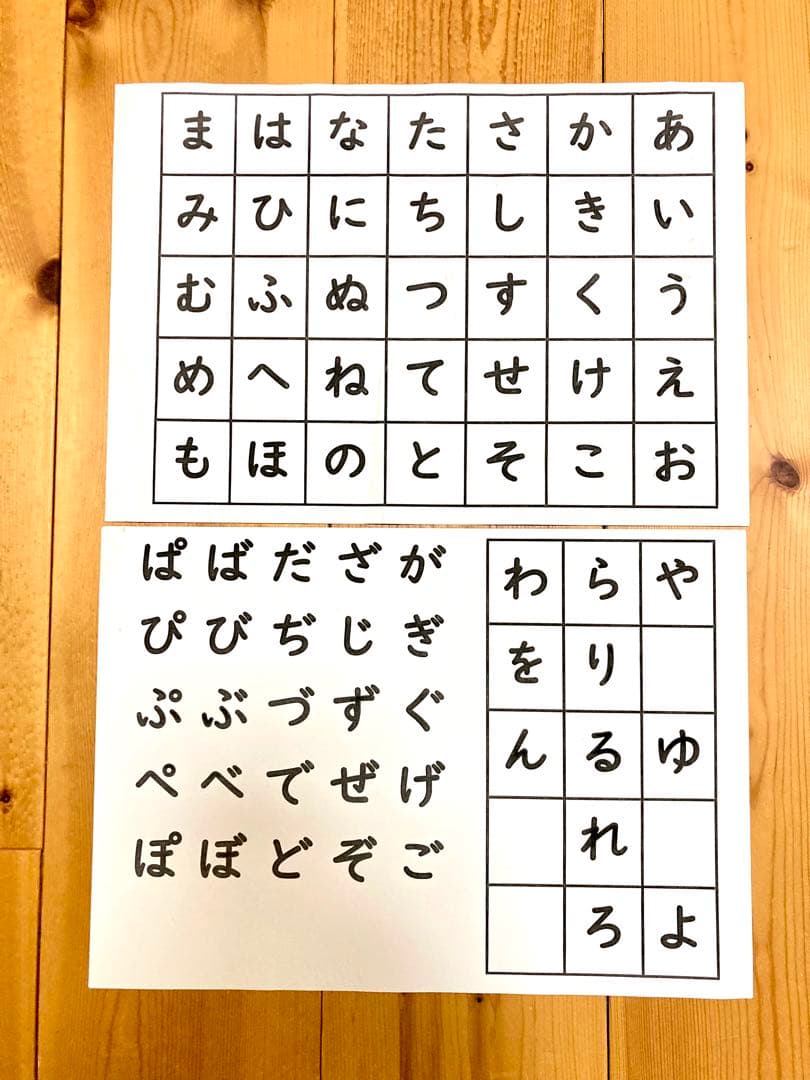 あいうえお
かきくけこ
さしすせそ
たちつてと
なにぬねの
はひふへほ
まみむめも
やゆよ
らりるれろ
わをん
がぎぐげご
ざじずぜぞ
だぢづでど
ばびぶべぼ
ぱぴぷぺぽ